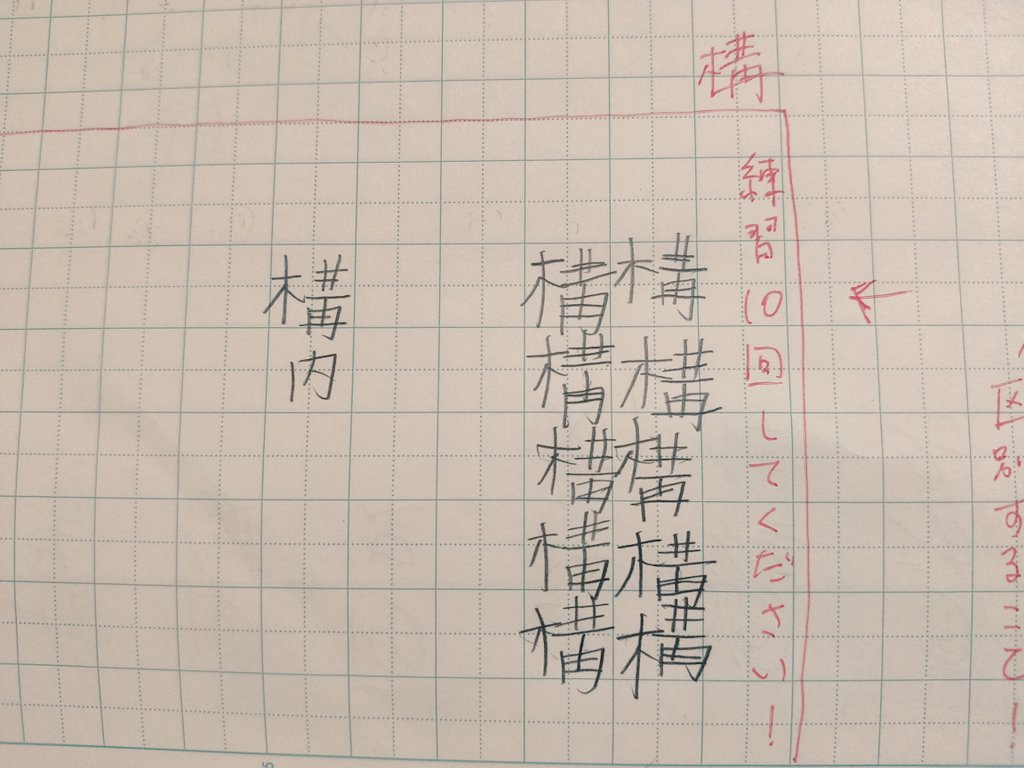 すること
構
練習10回してください！
構構構構構
構構構構構
構内